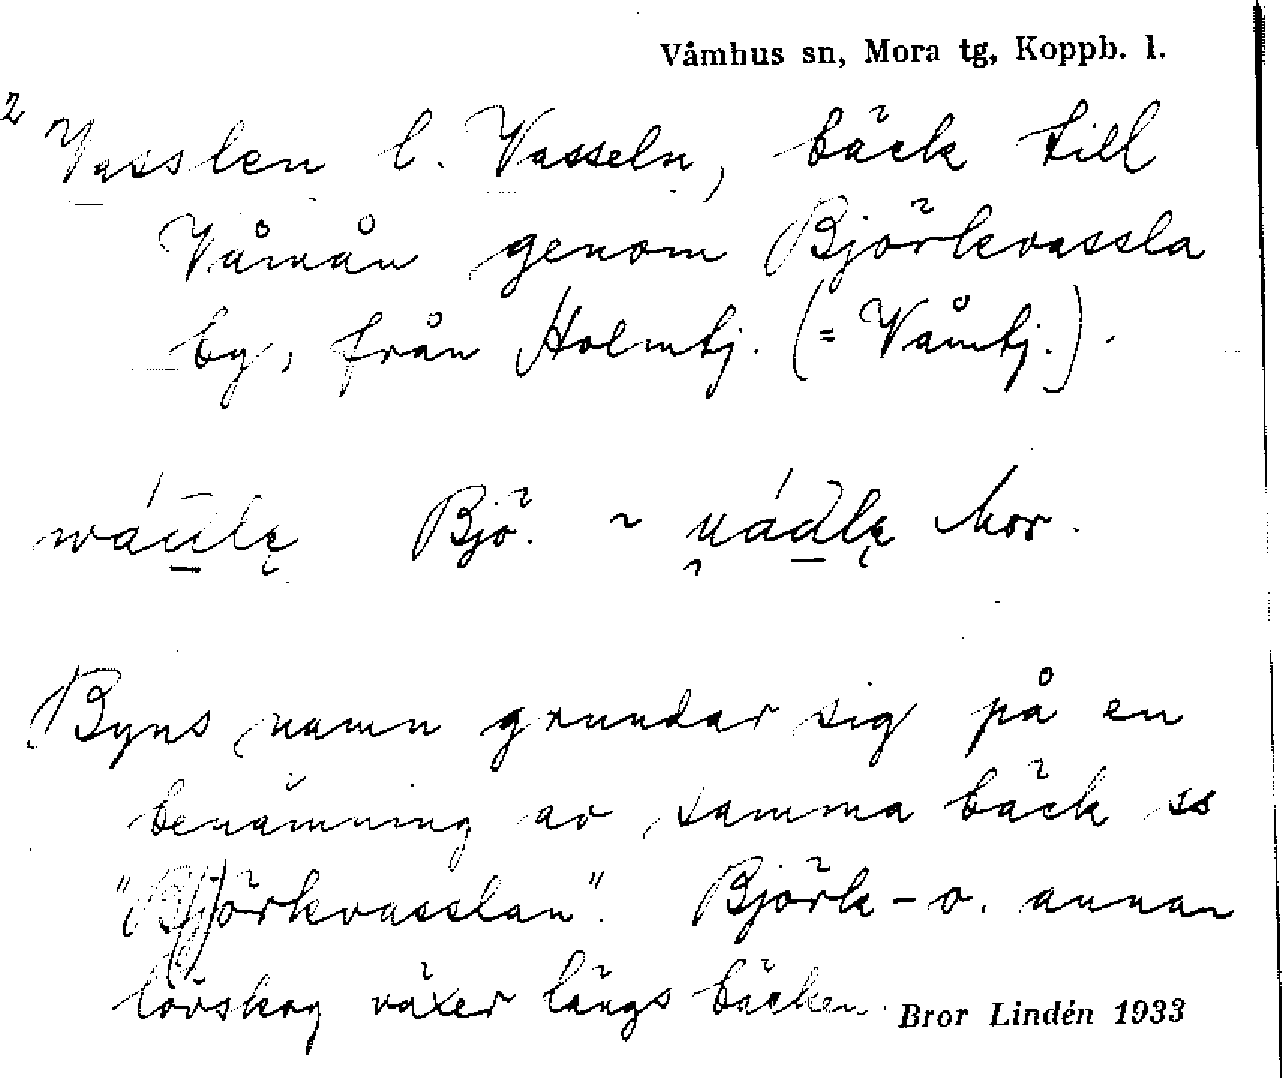 Våmhus sn, Mora tg, Koppb. l.
2 Vasslen l. Vasseln, bäck till
Våmån genom Björkvassla
by, från Holmtj. (= Våmtj.).
Bjö. ~ Mor.
Byns namn grundar sig på en
benämning av samma bäck ss
"Björkvasslan". Björk- o. annan
lövskog växer längs bäcken.
Bror Lindén 1933